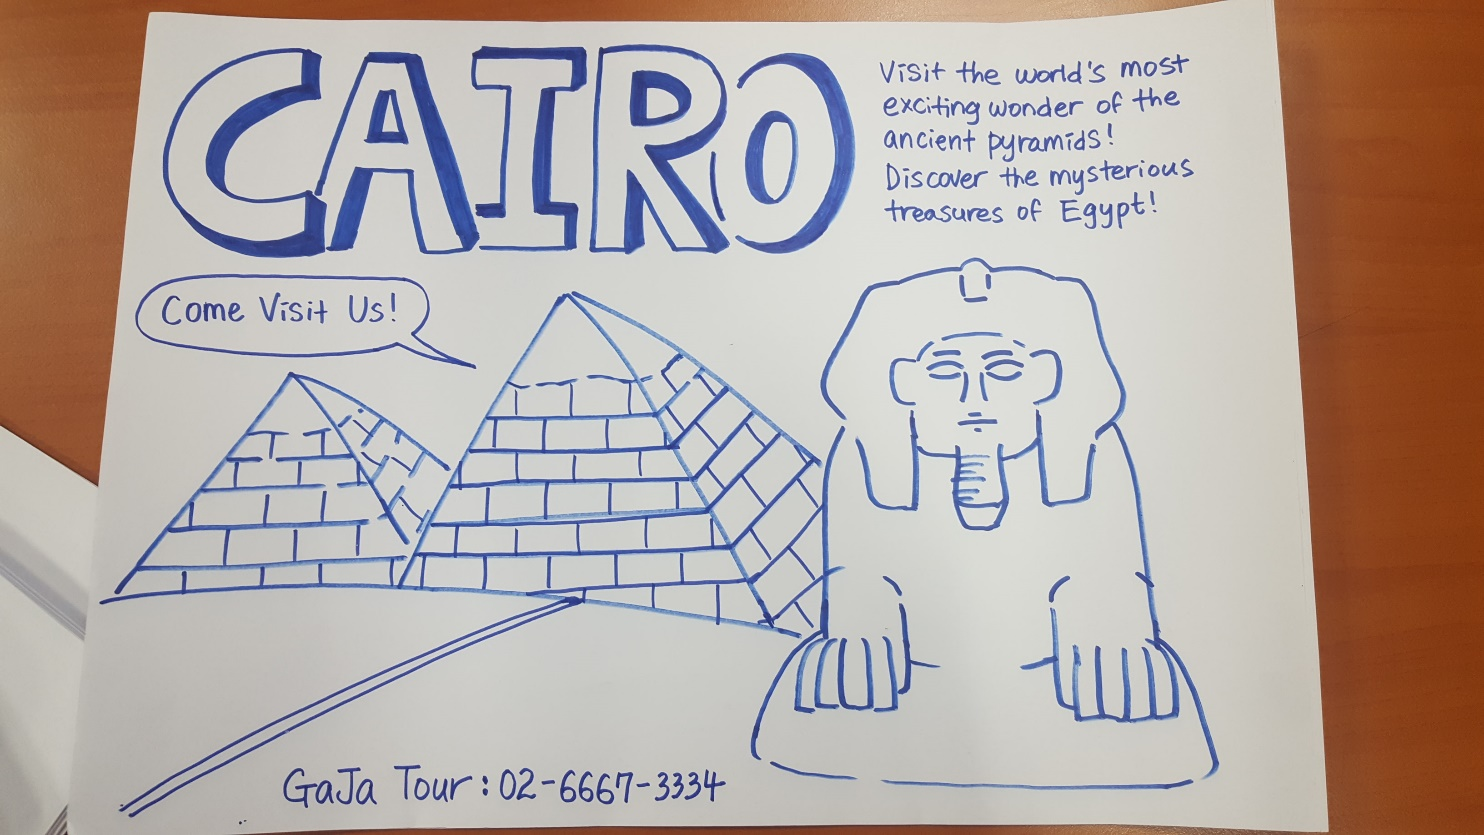 CAIRO
Visit the world's most
exciting wonder of the
ancient pyramids!
Discover the mysterious
treasures of Egypt!
Come Visit Us!
GaJa Tour : 02-6667-3334